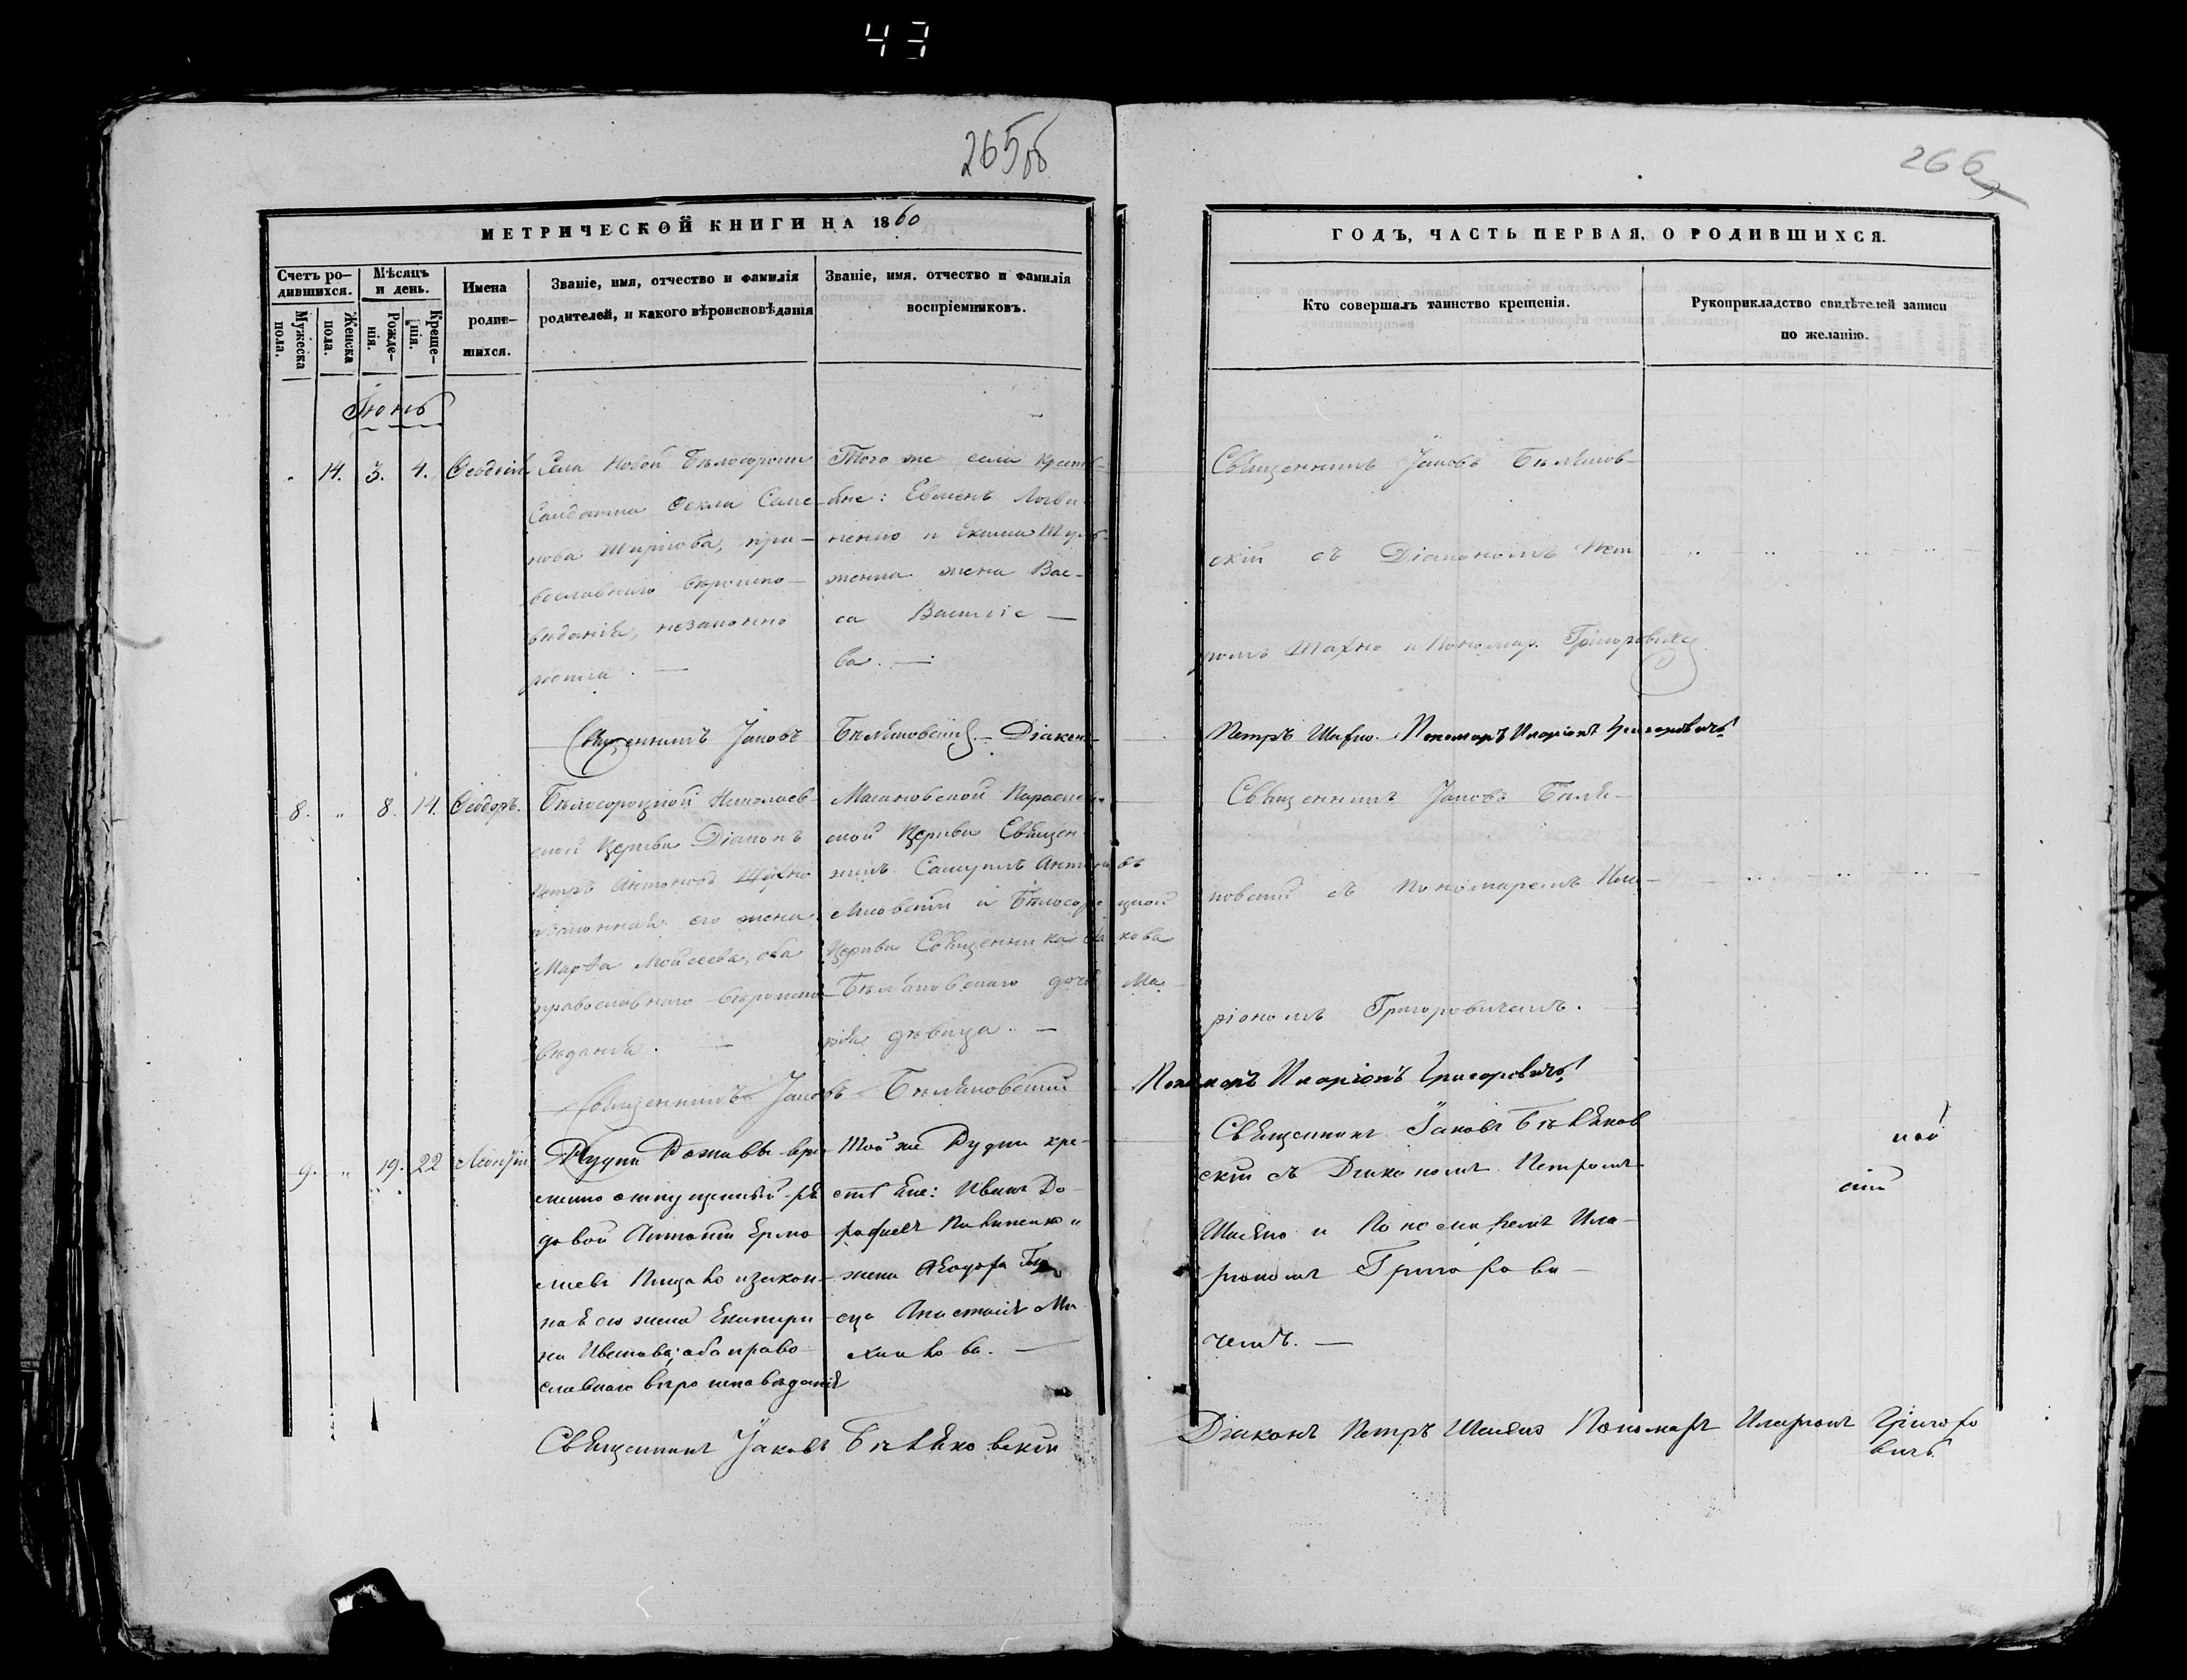 43
265об
266
МЕТРИЧЕСКОЙ КНИГИ НА 1860
ГОДЪ, ЧАСТЬ ПЕРВАЯ, О РОДИВШИХСЯ.
Счетъ ро-
дившихся.
Мужеска пола.
Женска пола.
Мѣсяцъ
и день.
Рожде-
нія.
Креще-
нія.
Имена
родив-
шихся.
Званіе, имя, отчество и фамилія
родителей, и какого вѣроисповѣданія
Званіе, имя, отчество и фамилія
воспріемниковъ.
Кто совершалъ таинство крещенія.
Рукоприкладство свидѣтелей записи
по желанію.
Іюнь
14. 3. 4.
Села Новой Бѣлосороки
Солдатка Ѳекла Саме-
нова, пра-
вославнаго вѣроиспо-
вѣданія, незаконно
Того же села Крестья-
не: Евменъ Логви-
ненко и
женка жена Вас-
са Василіе-
ва. —
Священникъ Іаковъ Бѣляков-
скій съ Діакономъ Пет-
ромъ Шахно и Пономар. Григоровичемъ
Священникъ Іаковъ Бѣляковскій. Діаконъ
Петръ Шахно. Пономарь Иларіонъ Григоровичъ
8. „ 8. 14. Ѳеодоръ.
Бѣлосороцкой Николаев-
ской Церкви Діаконъ
Петръ Антоновъ Шахно
и законная его жена
Марѳа Моисеева, оба
православнаго вѣроиспо-
вѣданія. —
ской Церкви Священ-
никъ Самуилъ
и Бѣлосороцкой
Церкви Священника Іакова
Бѣляковскаго дочь Ма-
рія дѣвица. —
Священникъ Іаковъ Бѣля-
ковскій съ Пономаремъ Ила-
ріономъ Григоровичемъ. —
Священникъ Іаковъ Бѣляковскій
Пономарь Иларіонъ Григоровичъ
9. „ 19. 22
Рудни вре-
менно отпущенный ря-
довой Антоній Ермо-
лаевъ и закон-
ная его жена Екатери-
на Иванова, оба право-
славнаго вѣроисповѣданія
Той же Рудни кре-
стьяне: Иванъ До-
рофеевъ и
жена Ѳеодора
Анастасія Ми-
хайлова. —
Священникъ Іаковъ Бѣляков
скій съ Діакономъ Петромъ
Шахно и Пономаремъ Ила-
ріономъ Григорови-
чемъ. —
Священникъ Іаковъ Бѣляковскій
Діаконъ Петръ Шахно Пономарь Иларіонъ Григоро
вичъ